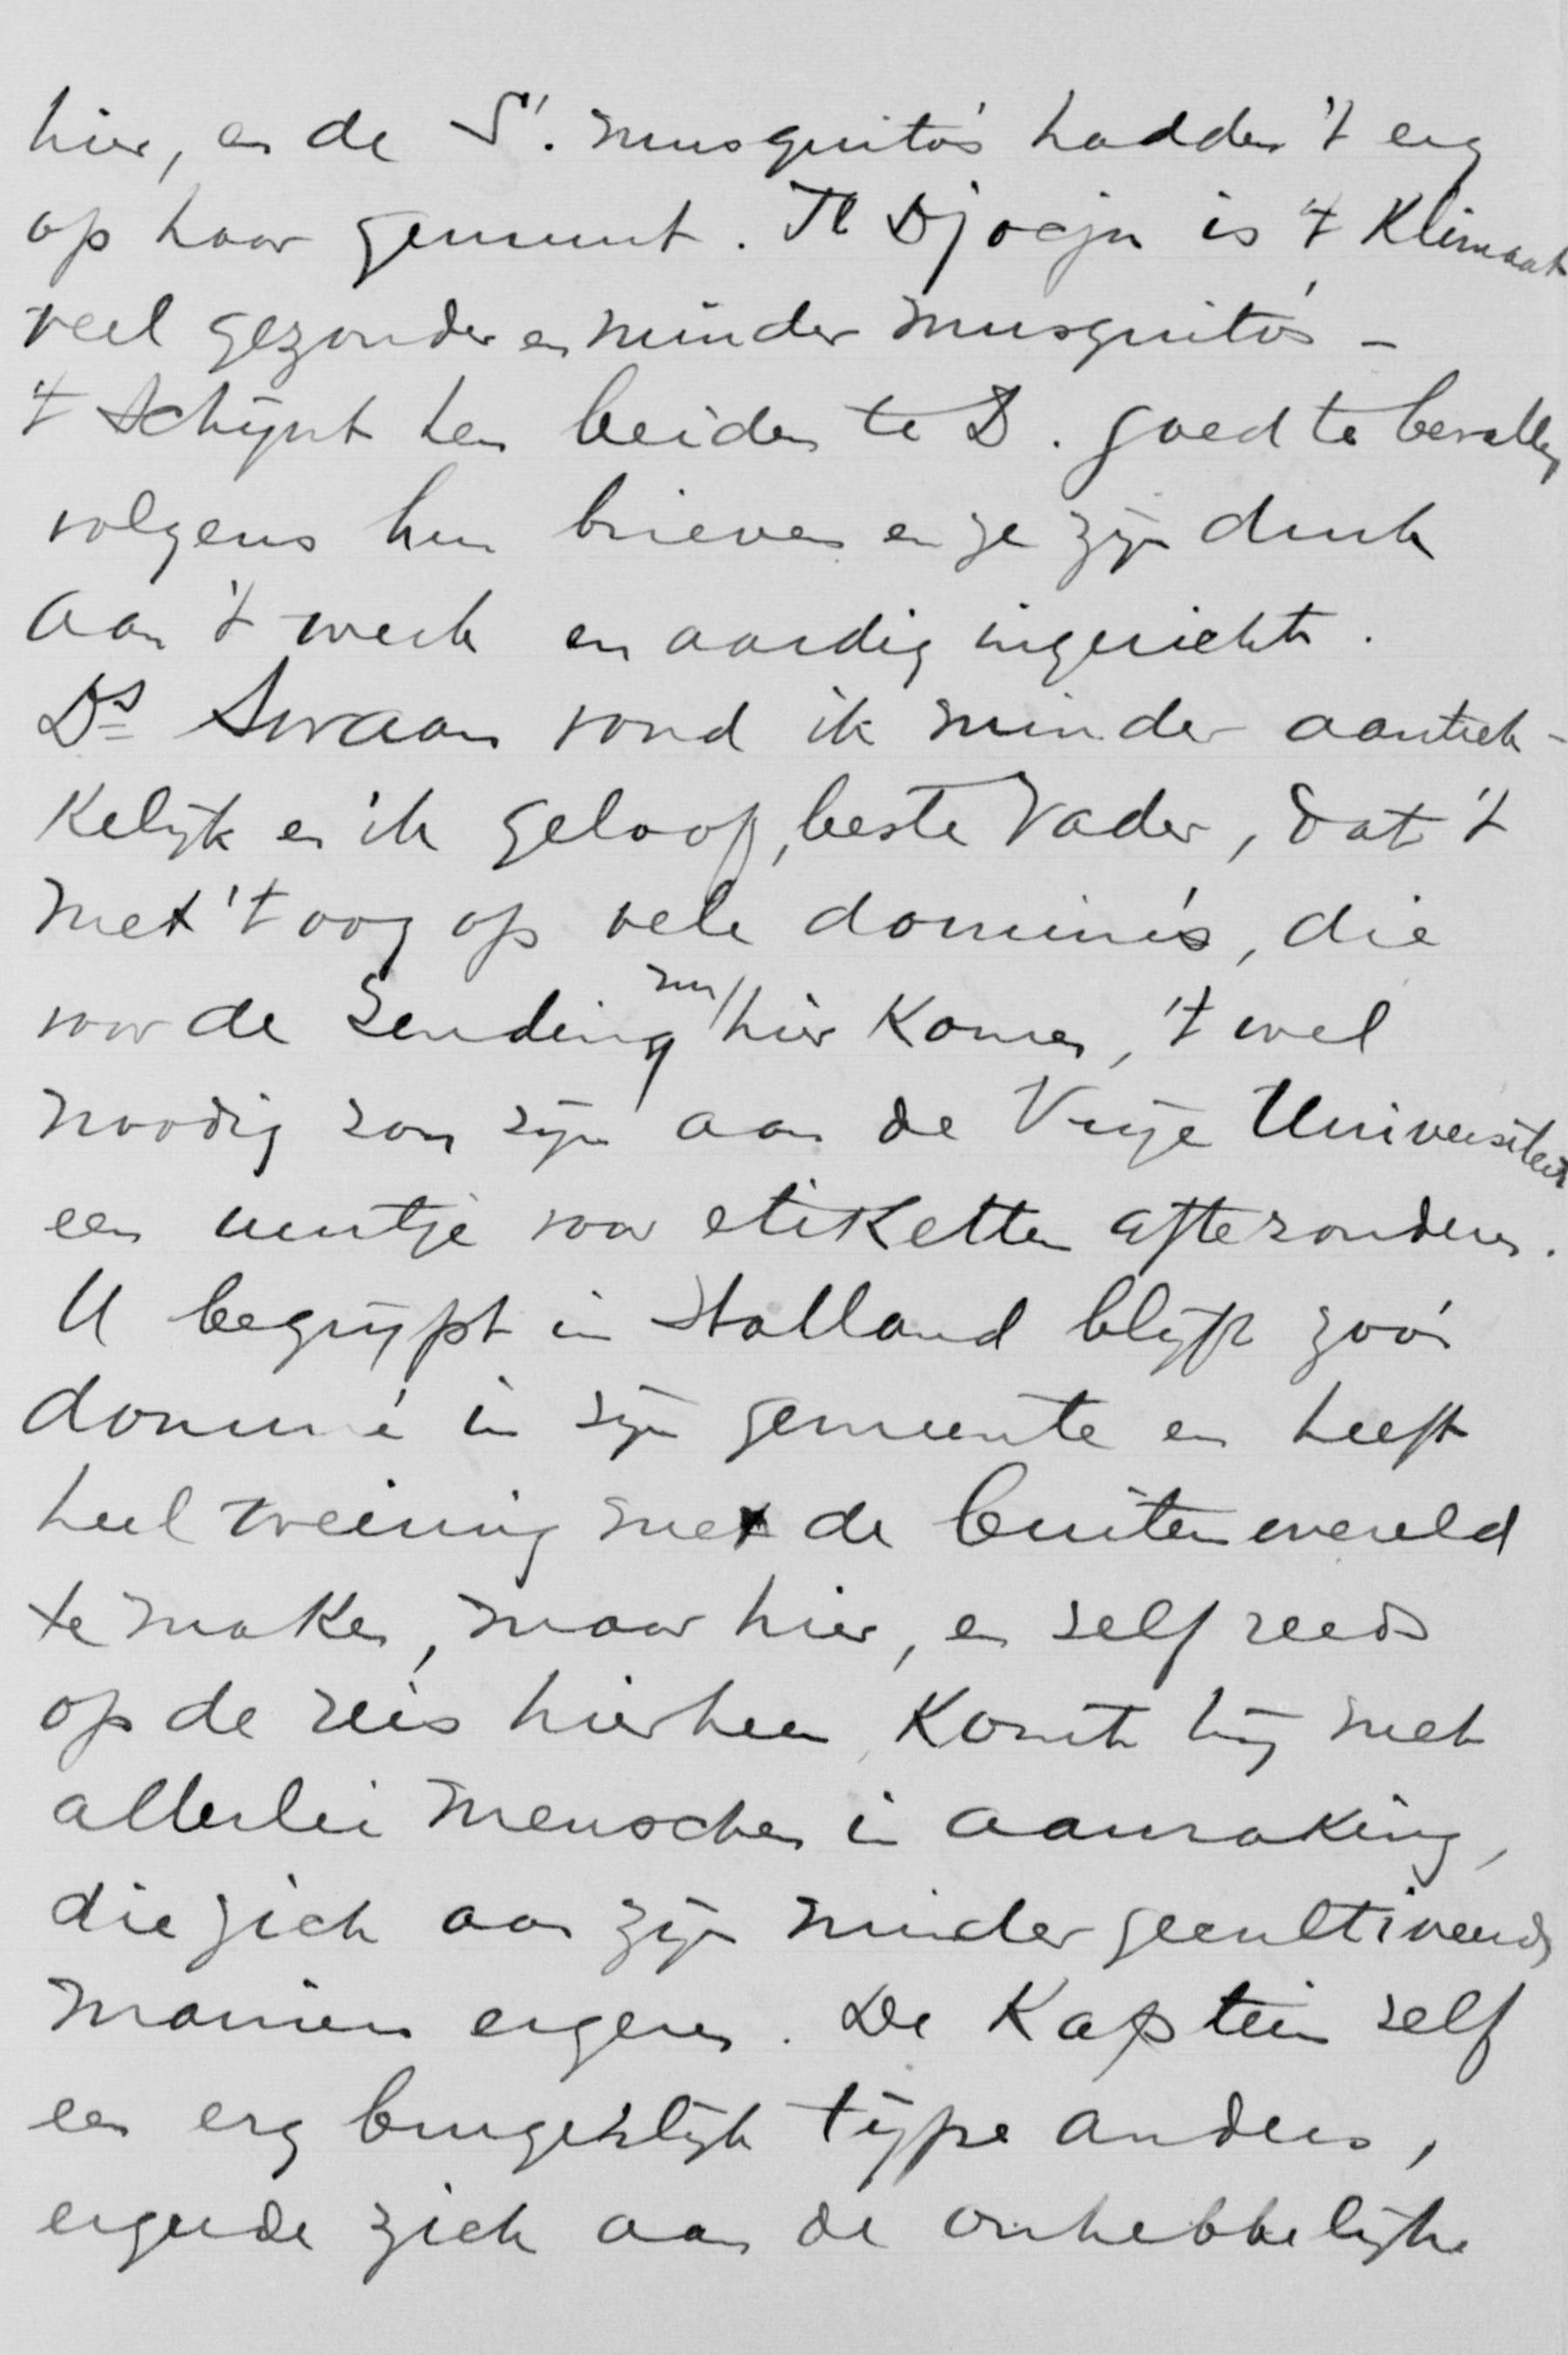 hier, en de S. musquito's hadden 't erg
op haar gemunt. Te Djocja is 't Klimaat
veel gezonder en minder musquito's –
't Schijnt hen beiden te D. goed te bevallen
volgens hun brieven en ze zijn druk
aan 't werk en aardig ingericht.
Ds Swaan vond ik minder aantrek-
kelijk en ik geloof, beste Vader, dat 't
met 't oog op vele dominés, die
voor de Zending nu hier Komen, 't wel
noodig zou zijn aan de Vrije Universiteit
een uurtje voor etiketten aftezonderen.
U begrijpt in Holland blijft zoo'n
dominé in zijn gemeente en heeft
heel weinig met de buitenwereld
te maken, maar hier, en zelf reeds
op de reis hierheen, Komt hij met
allerlei menschen in aanraking,
die zich aan zijn minder gecultiveerde
manieren ergeren. De Kaptein zelf
een erg burgerlijk type anders,
ergerde zich aan de onhebbelijke